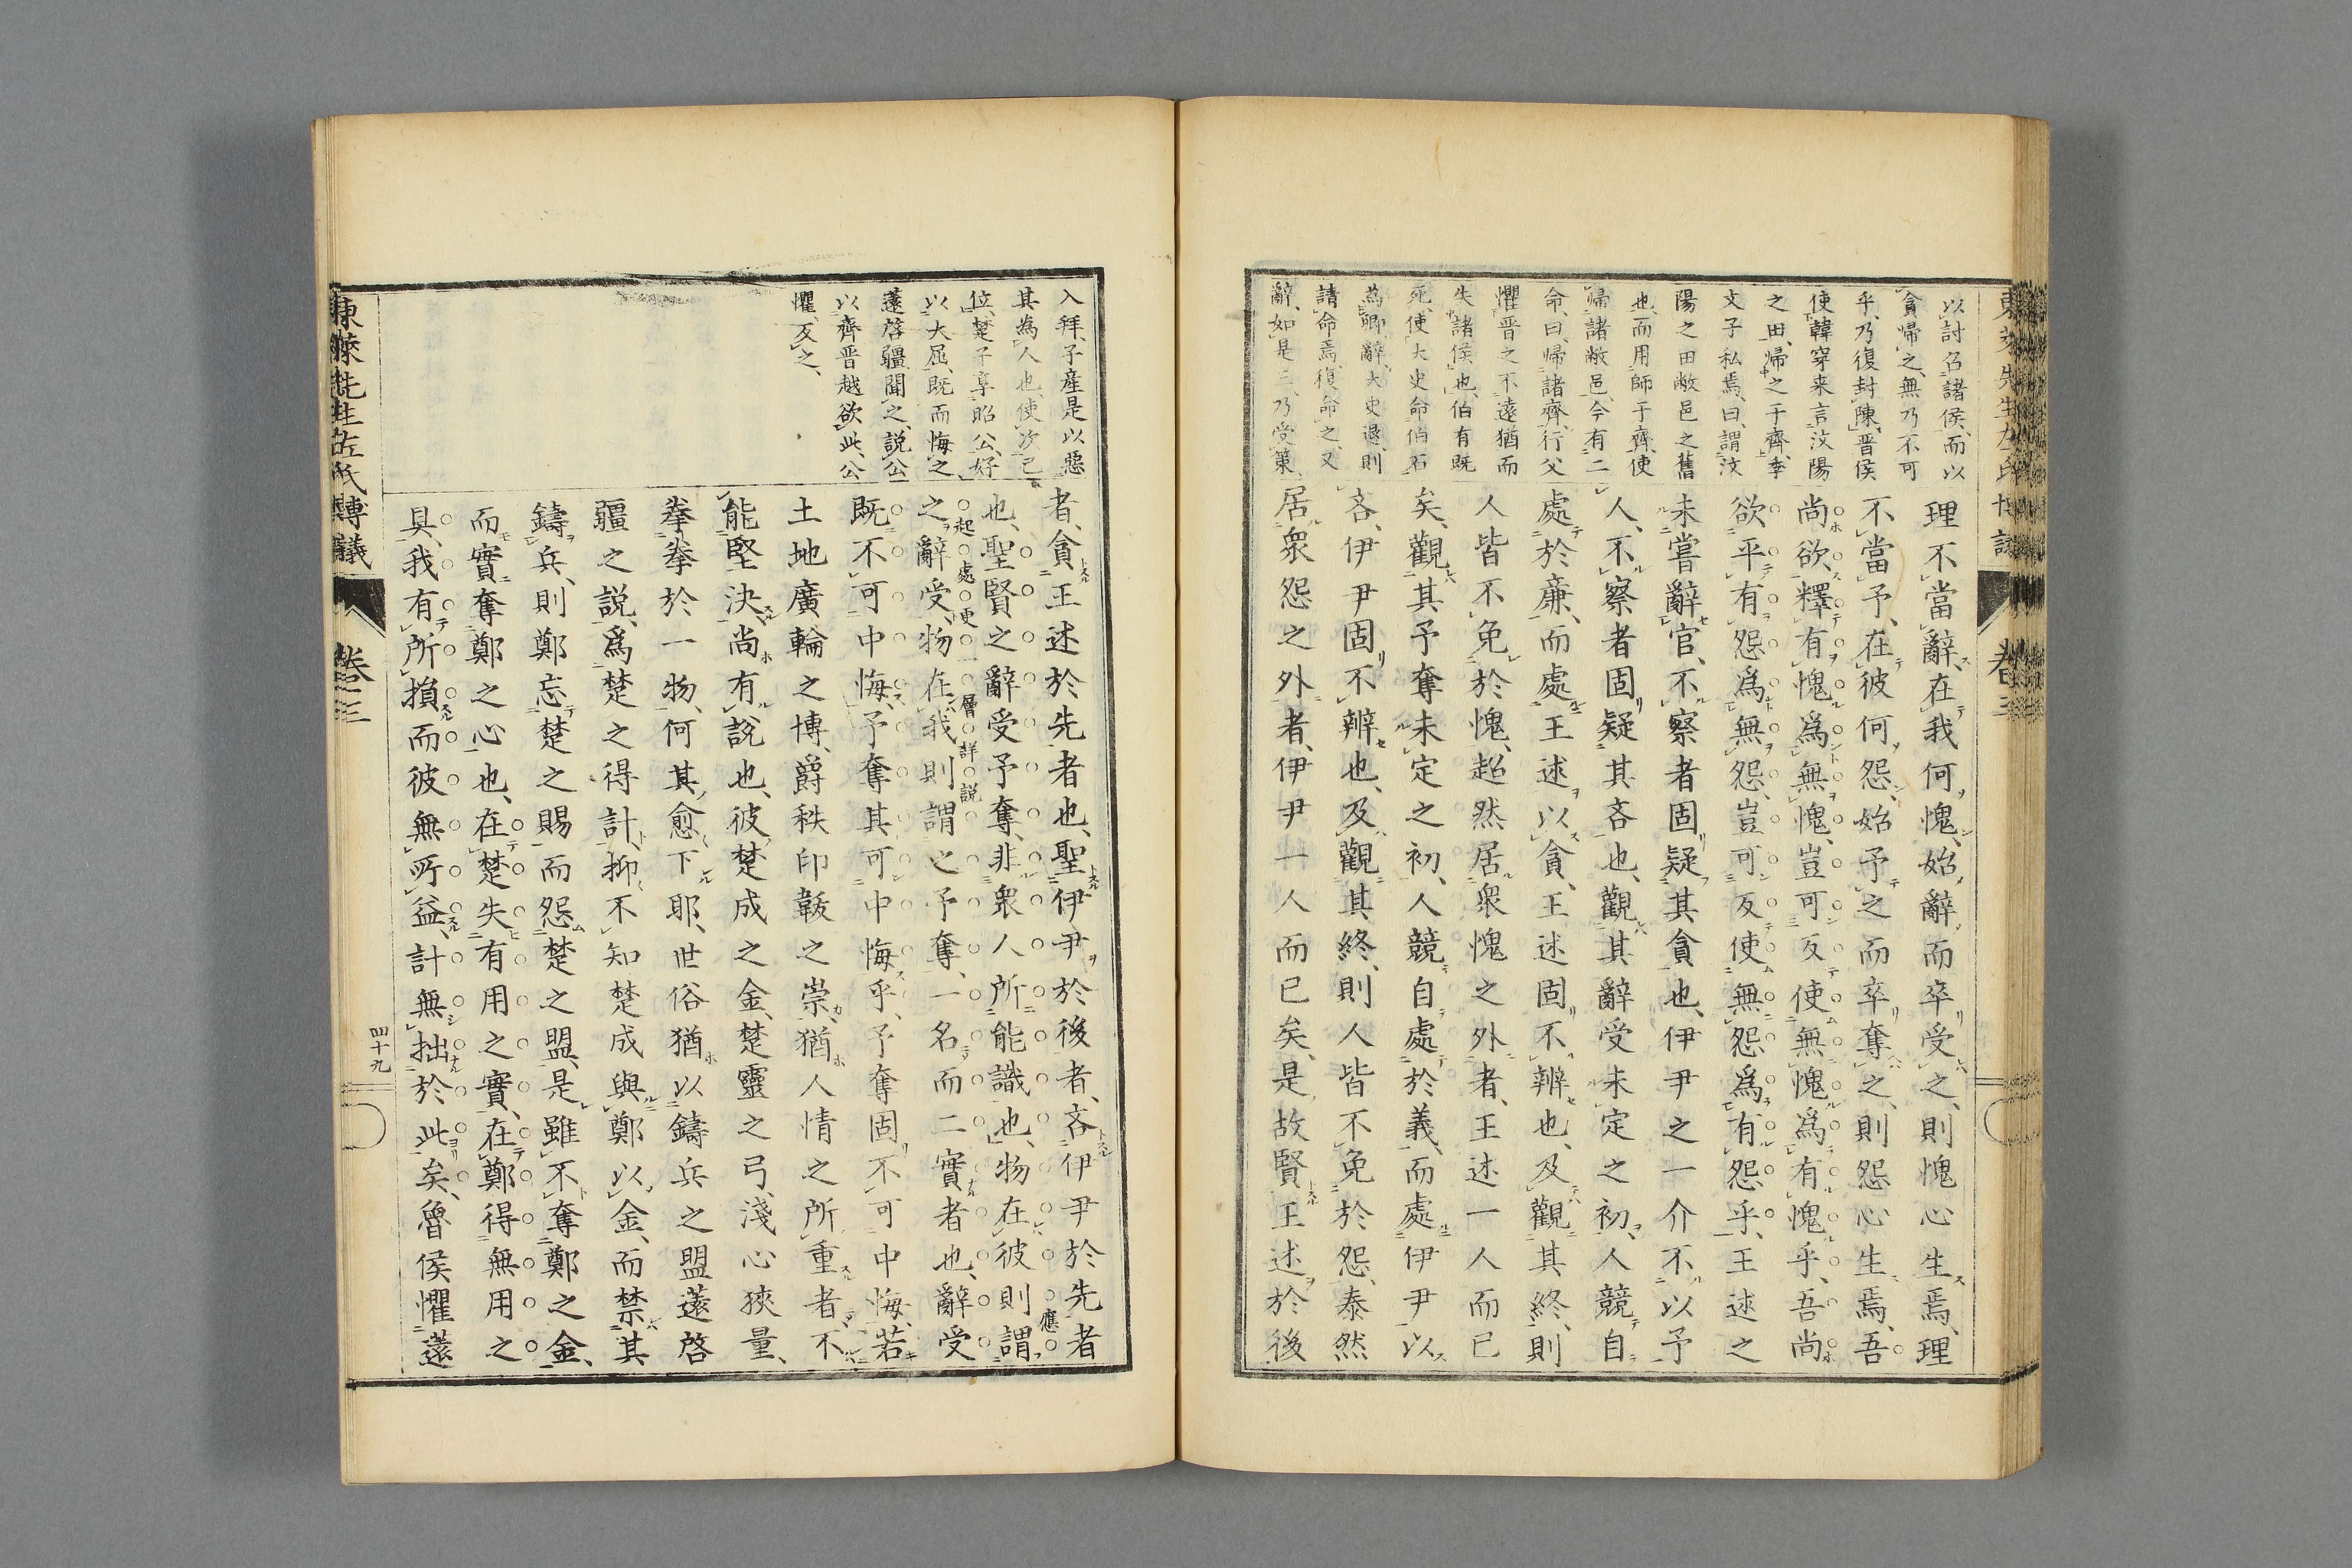 東萊先生左氏博議
卷三
以討召諸侯、而以
貪歸之、無乃不可
乎、乃復封陳、晉侯
使韓穿来言汶陽
之田、歸之于齊、季
文子私焉、曰、謂汶
陽之田敝邑之舊
也、而用師于齊、使
歸諸敝邑、今有二
命、曰、歸諸齊、行父
懼晋之不遠猶而
失諸侯也、伯有既
死、使大史命伯石
為卿、辭、大史退、則
請命焉、復命之、又
辭、如是三、乃受策、
理不當辭、在我何愧、始辭而卒受之、則愧心生焉、理
不當予、在彼何怨、始予之而卒奪之、則怨心生焉、吾
尚欲釋有愧爲無愧、豈可反使無愧爲有愧乎、吾尚
欲平有怨爲無怨、豈可反使無怨爲有怨乎、王述之
未嘗辭官、不察者固疑其貪也、伊尹之一介不以予
人、不察者固疑其吝也、觀其辭受未定之初、人競自
處於廉、而處王述以貪、王述固不辨也、及觀其終、則
人皆不免於愧、超然居衆愧之外者、王述一人而已
矣、觀其予奪未定之初、人競自處於義、而處伊尹以
吝、伊尹固不辨也、及觀其終、則人皆不免於怨、泰然
居衆怨之外者、伊尹一人而已矣、是故賢王述於後
入拜、子産是以惡
其為人也、使次己
位、楚子享昭公、好
以大屈、既而悔之、
薳啓疆聞之、説公
以齊晋越欲此、公
懼、反之、
者、貪王述於先者也、聖伊尹於後者、吝伊尹於先者
也、聖賢之辭受予奪、非衆人所能識也、物在彼則謂
之辭受、物在我則謂之予奪、一名而二實者也、辭受
既不可中悔、予奪其可中悔乎、予奪固不可中悔、若
土地廣輪之博、爵秩印韍之崇、猶人情之所重者、不
能堅決、尚有説也、彼楚成之金、楚靈之弓、淺心狹量、
拳拳於一物、何其愈下耶、世俗猶以鑄兵之盟薳啓
疆之説、爲楚之得計、抑不知楚成與鄭以金、而禁其
鑄兵、則鄭忘楚之賜而怨楚之盟、是雖不奪鄭之金、
而實奪鄭之心也、在楚失有用之實、在鄭得無用之
具、我有所損而彼無所益、計無拙於此矣、魯侯懼薳
起處更一層詳説
應
東萊先生左氏博議
卷三
四十九